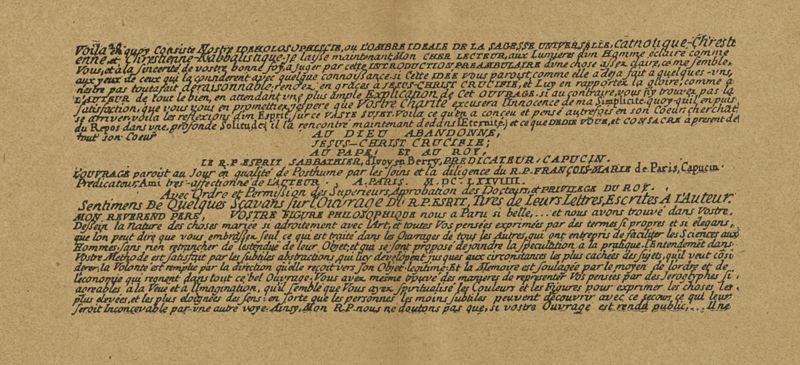 Voilà En quoy Consiste Nostre IDEHOLOSOPHISCIE, ou L'OMBRE IDEALE DE LA SAGESSE UNIVERSELLE, Catholique-Chreste
enne et Chrestienne-Kabbalistique, Je laisse maintenant Mon CHER LECTEUR, aux Lumieres d'un Homme éclairé comme
Vous, et à la sincerité de vostre bonne foy, à juger par cette INTRODUCTION PREAMBULAIRE d'une chose assez claire, comme semble,
aux yeux de ceux qui la considerent avec quelque connoissance. si Cette IDEE vous paroist, comme elle a deja fait a quelques-uns,
nestre pas toutafait deraisonnable, rendez en graces a JESUS-CHRIST CRUCIFIE, et Luy en rapportez la gloire, comme a
L'AUTEUR de tout le bien, en attendant une plus ample EXPLICATION de Cet OUVRAGE. si au contraire, vous n'y trouvez pas la
satisfaction, que vous vous en promettiez, j'espere que Vostre Charité excusera l'Innocence de ma Simplicité, quoy qu'il en puis
se arriver, voila les reflexions d'un Esprit, sur ce VASTE SUJET. Voila ce qu'en a conçeu et pensé autresfois en son Coeur cherchāt
du Repos dans une profonde Solitude, il la rencontre maintenant dedans l'Eternité, et ce que DEDIE VOUE, et CONSACRE à present de
tout son Coeur
AU DIEU ABANDONNE,
JESUS-CHRIST CRUCIFIE;
AU PAPE; ET AU ROY,
LE R.P ESPRIT SABBATHIER, d'Ivoy en Berry, PREDICATEUR, CAPUCIN.
L'OUVRAGE paroit au Jour en qualité de Posthume par les soins et la diligence du R.P. FRANÇOIS-MARIE de Paris, Capucin
Predicateur, Ami tres-affectionné de L'AUTEUR, A PARIS. M.DC.LXXVIIII.
Avec Ordre et Permission des Superieurs, Aprobation des Docteurs, et PRIVILEGE DU ROY.
Sentimens De Quelques Sçavans sur L'Ouvrage Du R.P. ESPRIT, Tirés de Leurs Lettres, Escrites A L'Auteur.
MON REVEREND PERE, VOSTRE FIGURE PHILOSOPHIQUE nous a Paru si belle, .... et nous avons trouvé dans Vostre
Dessein la Nature des choses mariée si adroitement avec l'Art, et toutes Vos pensées exprimées par des termes si propres et si elegans,
que l'on peut dire que vous embrassez seul ce qui est traité dans les Ouvrages de tous les Autres, qui ont entrepris de faciliter les Sciences aux
Hommes, sans rien retrancher de l'estendue de leur Objet, et qui se sont proposé de joindre la speculation a la pratique. l'Entendement dans
Vostre Methode est satisfait par les subtiles abstractions, qui luy dévelopent jusques aux circonstances les plus cachées des sujets, qu'il veut cōsi
derer, la Volonté est remplie par la direction qu'elle reçoit vers son Objet legitime: Et la Memoire est soulagée par le moyen de l'ordre et de
l'economie qui regnent dans tout ce bel Ouvrage. Vous avez mesme trouvé des manieres de representer Vos pensées par des Jeroglyphes si
agreables a la Veue et a l'Imagination, qu'il semble que Vous ayez spiritualisé les Couleurs et les Figures pour exprimer les choses les
plus elevées, et les plus eloignées des sens: en sorte que les personnes les moins subtiles peuvent découvrir avec ce secours, ce qui leur
seroit Inconcevable par une autre voye. Ainsy, Mon R.P. nous ne doutons pas que, si vostre Ouvrage est rendu public, ... Il ne